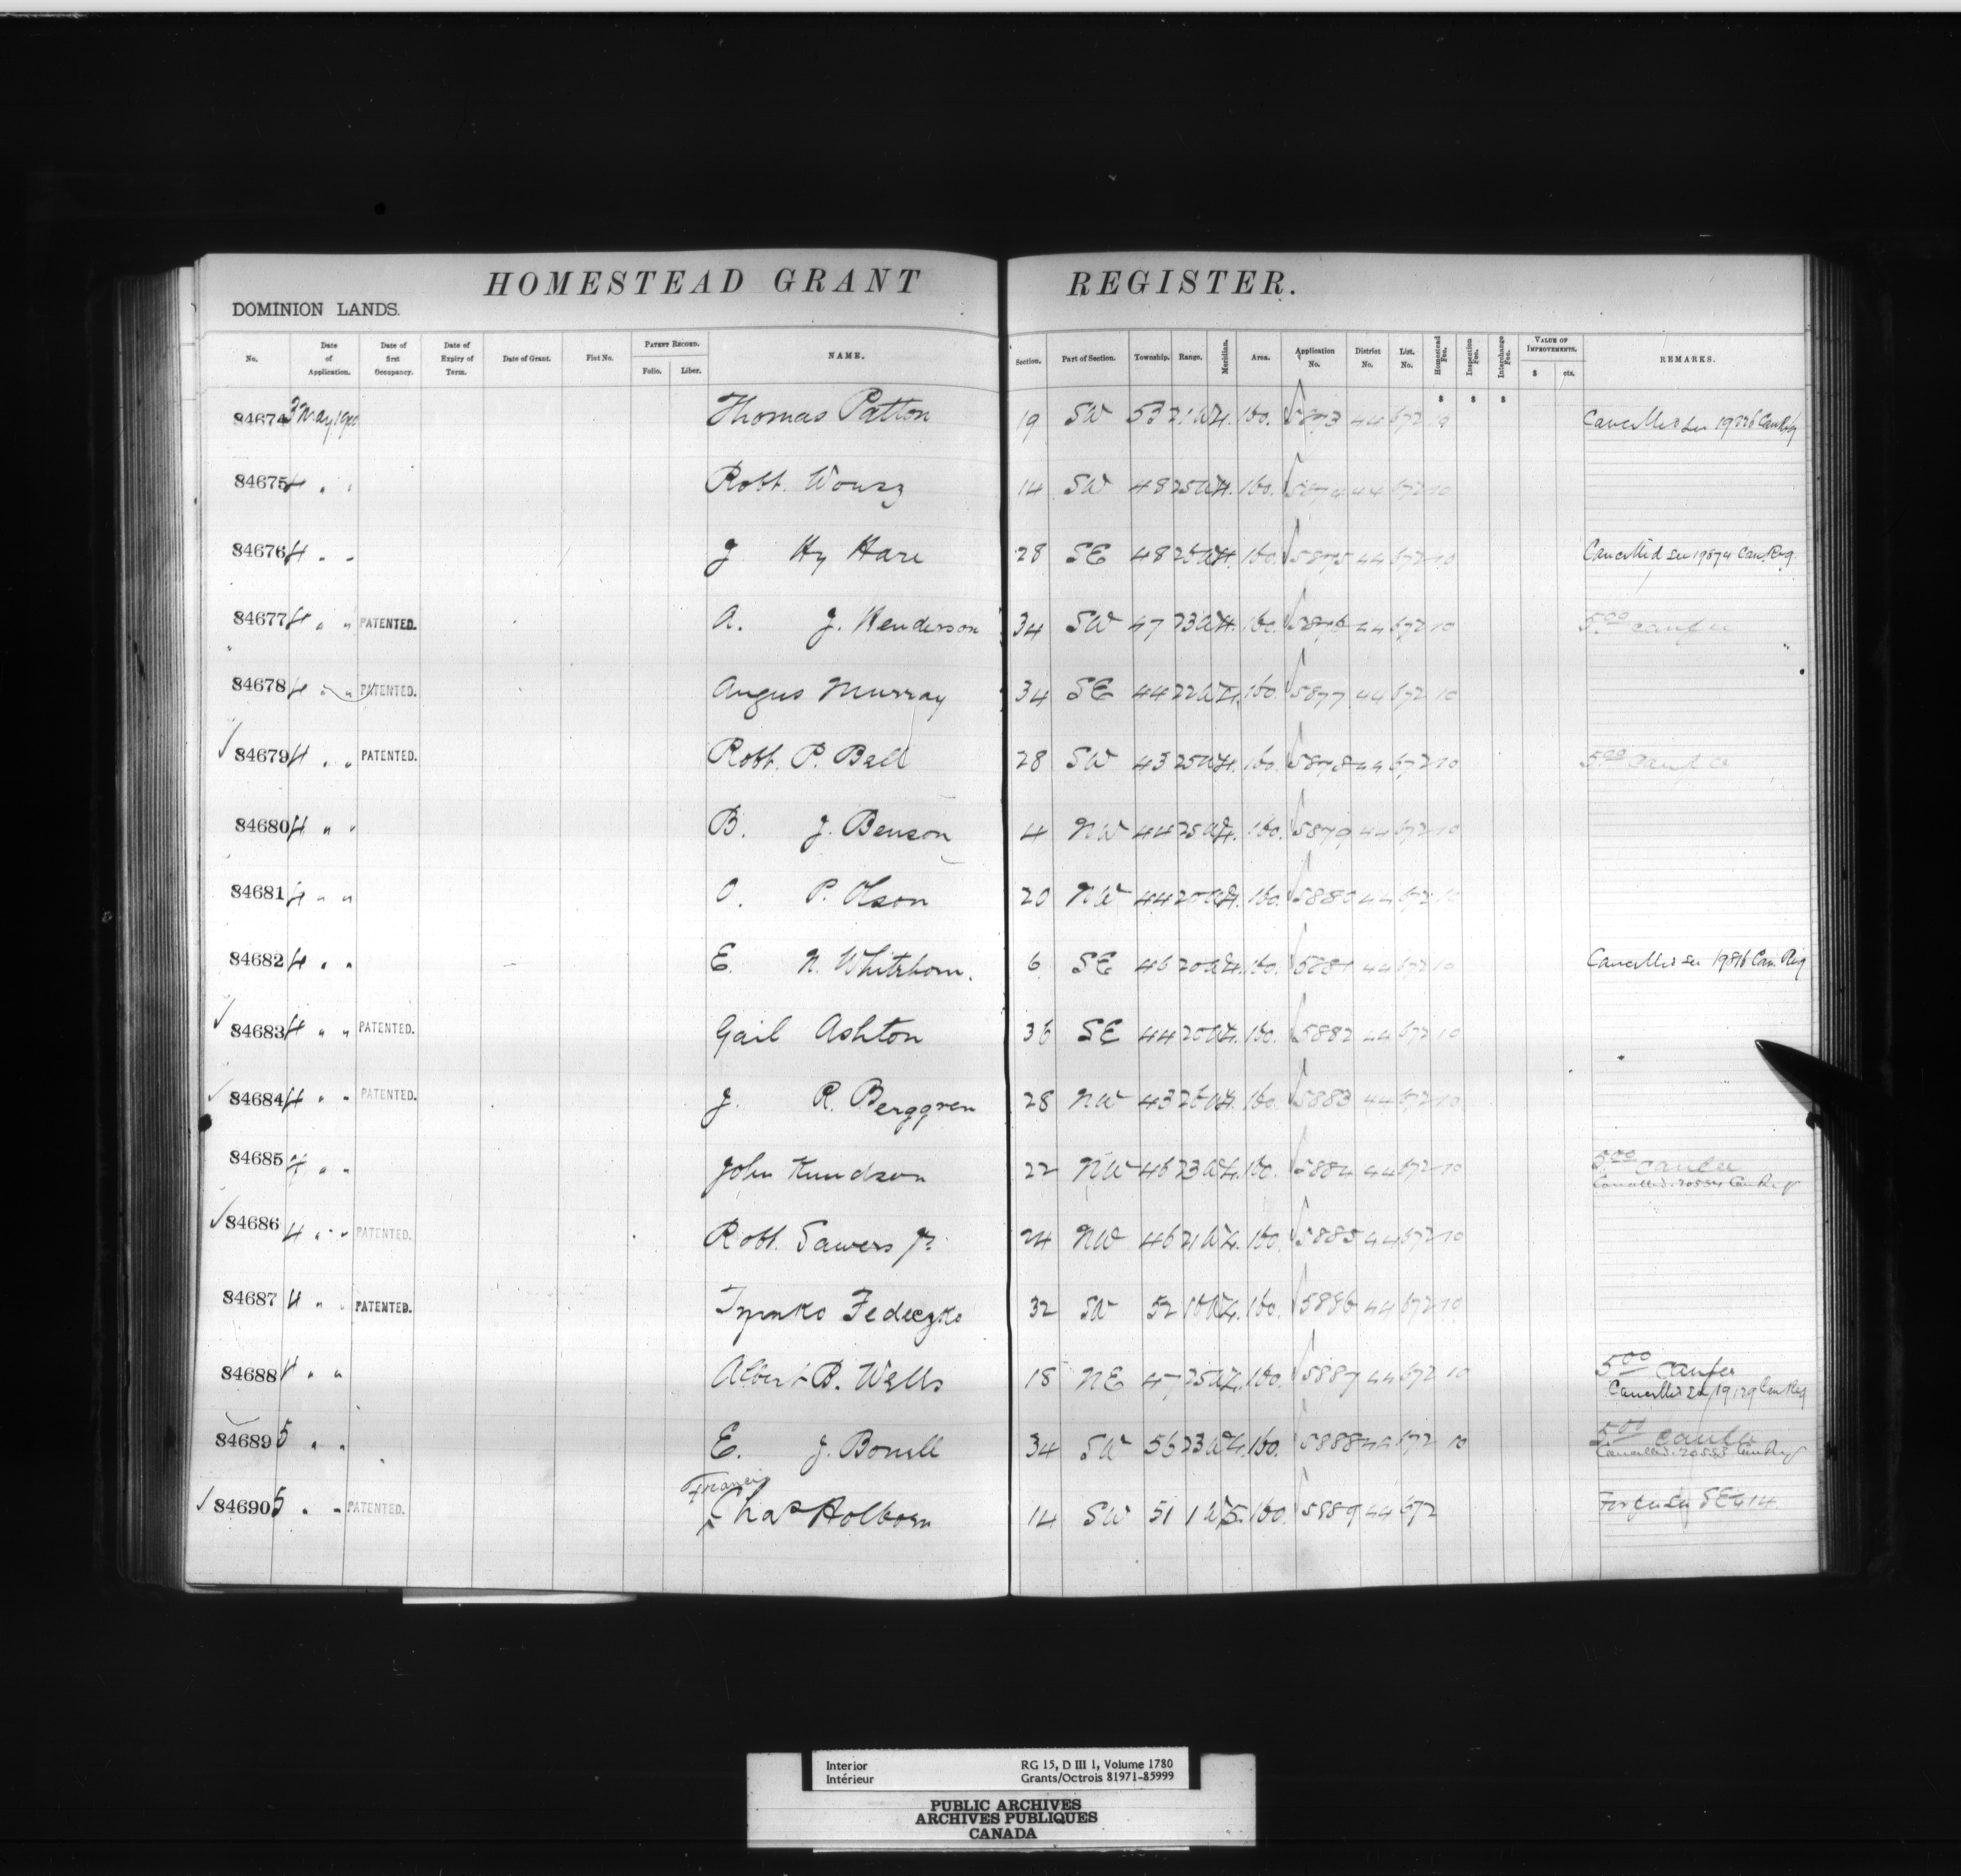 HOMESTEAD GRANT REGISTER.
DOMINION LANDS.
No. Date of Application. Date of first Occupancy. Date of Expiry of Term. Date of Grant. Fiat No. PATENT RECORD. Folio. Liber. NAME. Section. Part of Section. Township. Range. Meridian. Area. Application No. District No. List. No. Homestead Fee. Inspection Fee. Interchange Fee. VALUE OF IMPROVEMENTS. $ cts. REMARKS.
$ $ $
84674 3 May 1900 Thomas Patton 19 SW 53 21 W4. 160. 5873 44 672 10 Cancelled see Can Reg
84675 4 " " Robt. 14 SW 48 25 W4. 160. 5874 44 672 10
84676 4 " " J Hy Hare 28 SE 48 25 W4. 160. 5875 44 672 10 Cancelled see 19874 Can. Reg.
84677 4 " " PATENTED. A. J. Henderson 34 SW 47 23 W4. 160. 5876 44 672 10 5.00 Can fee
84678 4 " " PATENTED. Angus Murray 34 SE 44 22 W4. 160. 5877 44 672 10
✓ 84679 4 " " PATENTED. Robt. P. Ball 28 SW 43 25 W4. 160. 5878 44 672 10 5.00 Can fee
84680 4 " " B. J. Benson 4 NW 44 25 W4. 160. 5879 44 672 10
84681 4 " " O. P. Olson 20 NW 44 20 W4. 160. 5880 44 672 10
84682 4 " " E. N. Whitehorn. 6 SE 46 20 W4. 160. 5881 44 672 10 Cancelled see 19876 Can. Reg
✓ 84683 4 " " PATENTED. Gail Ashton 36 SE 44 20 W4. 160. 5882 44 672 10
✓ 84684 4 " " PATENTED. J. R. Berggren 28 NW 43 26 W4. 160. 5883 44 672 10
84685 4 " " John Knudson 22 NW 46 23 W4. 160. 5884 44 672 10 5.00 Can fee
Cancelled. Can Reg
✓ 84686 4 " " PATENTED. Robt. Sawers Jr. 24 NW 46 21 W4. 160. 5885 44 672 10
84687 4 " " PATENTED. Fedeczko 32 SW 52 16 W4. 160. 5886 44 672 10
84688 4 " " Albert B. Wells 18 NE 47 25 W4. 160. 5887 44 672 10 5.00 Can fee
Cancelled see 19129 Can Reg
84689 5 " " E. J. 34 SW 56 23 W4. 160. 5888 44 672 10 5.00 Can fee
Cancelled. 20555 Can Reg
Francis
✓ 84690 5 " " PATENTED. Chas Holborn 14 SW 51 1 W5. 160. 5889 44 672 For fee see SE 4 14
Interior RG 15, D III 1, Volume 1780
Intérieur Grants/Octrois 81971-85999
PUBLIC ARCHIVES
ARCHIVES PUBLIQUES
CANADA